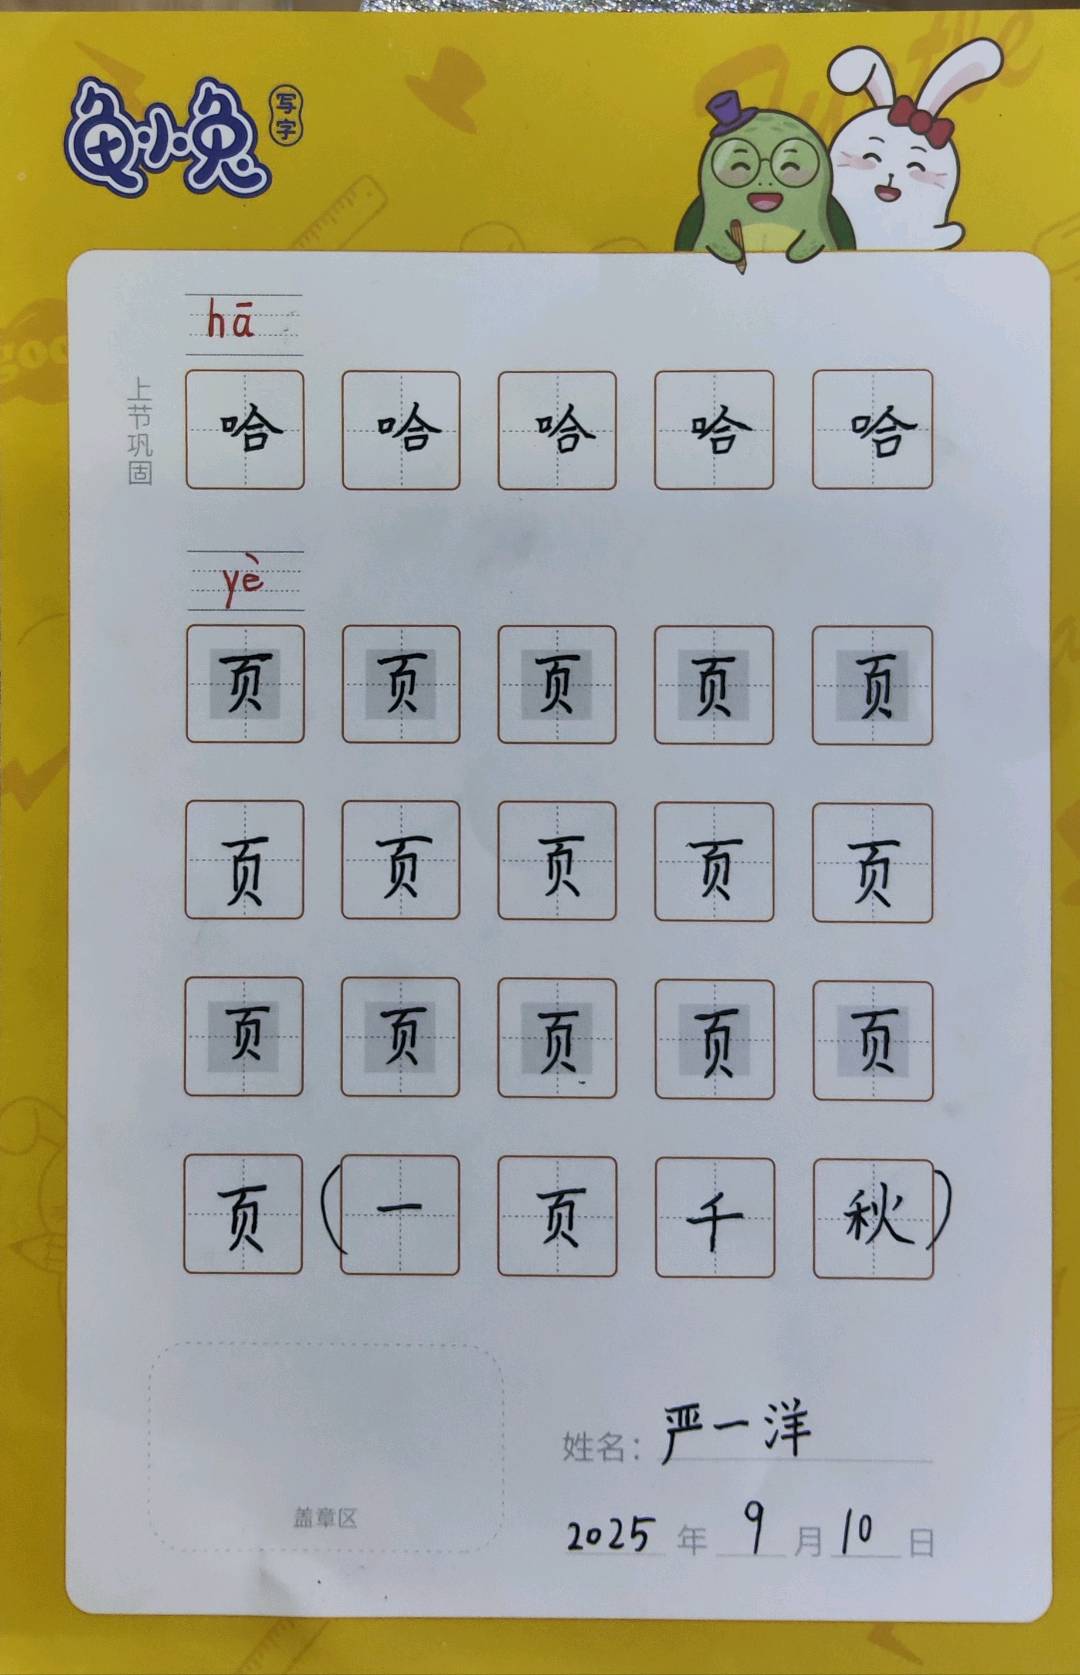 龟小兔 写字
hā
上节巩固
哈 哈 哈 哈 哈
yè
页 页 页 页 页
页 页 页 页 页
页 页 页 页 页
页 (一 页 千 秋)
姓名: 严一洋
盖章区
2025 年 9 月 10 日